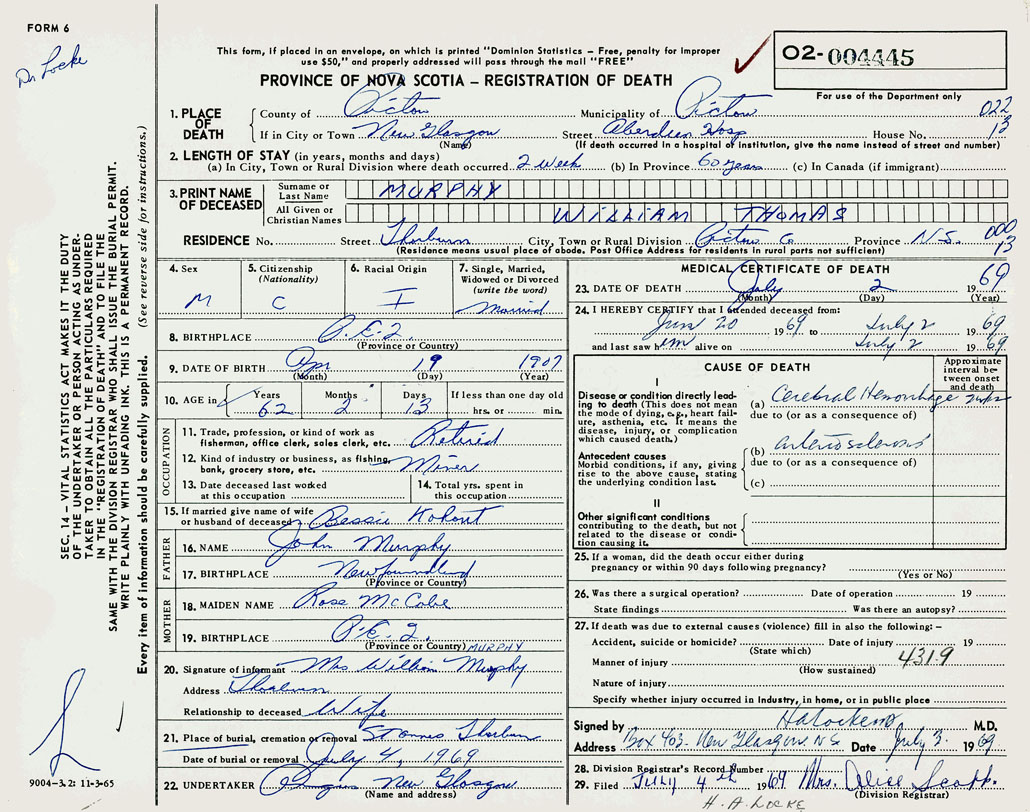 FORM 6
Dr Locke
This form, if placed in an envelope, on which is printed "Dominion Statistics – Free, penalty for Improper
use $50," and properly addressed will pass through the mail "FREE"
PROVINCE OF NOVA SCOTIA – REGISTRATION OF DEATH
O2-004445
For use of the Department only
1. PLACE OF DEATH
County of Pictou Municipality of Pictou 022
If in City or Town New Glasgow Street Aberdeen Hosp House No. 13
(Name) (If death occurred in a hospital or institution, give the name instead of street and number)
2. LENGTH OF STAY (in years, months and days)
(a) In City, Town or Rural Division where death occurred 2 week (b) In Province 60 years (c) In Canada (if immigrant)
3. PRINT NAME OF DECEASED
Surname or Last Name MURPHY
All Given or Christian Names WILLIAM THOMAS
RESIDENCE No. Street Thorburn City, Town or Rural Division Pictou Co. Province N.S. 000 13
(Residence means usual place of abode. Post Office Address for residents in rural parts not sufficient)
4. Sex
M
5. Citizenship
(Nationality)
C
6. Racial Origin
I
7. Single, Married,
Widowed or Divorced
(write the word)
Married
8. BIRTHPLACE P.E.I.
(Province or Country)
9. DATE OF BIRTH Apr 19 1907
(Month) (Day) (Year)
10. AGE in Years 62 Months 2 Days 13 If less than one day old
hrs. or min.
OCCUPATION
11. Trade, profession, or kind of work as
fisherman, office clerk, sales clerk, etc. Retired
12. Kind of industry or business, as fishing,
bank, grocery store, etc. Miner
13. Date deceased last worked
at this occupation
14. Total yrs. spent in
this occupation
15. If married give name of wife
or husband of deceased Bessie Kohout
FATHER
16. NAME John Murphy
17. BIRTHPLACE Newfoundland
(Province or Country)
MOTHER
18. MAIDEN NAME Rose McCabe
19. BIRTHPLACE P.E.I.
(Province or Country) MURPHY
20. Signature of informant Mrs William Murphy
Address Thorburn
Relationship to deceased Wife
21. Place of burial, cremation or removal Thorburn
Date of burial or removal July 4, 1969
22. UNDERTAKER New Glasgow
(Name and address)
MEDICAL CERTIFICATE OF DEATH
23. DATE OF DEATH July 2 1969
(Month) (Day) (Year)
24. I HEREBY CERTIFY that I attended deceased from:
June 20 1969 to July 2 1969
and last saw him alive on July 2 1969
CAUSE OF DEATH
Approximate
interval be-
tween onset
and death
I
Disease or condition directly lead-
ing to death (This does not mean
the mode of dying, e.g., heart fail-
ure, asthenia, etc. It means the
disease, injury, or complication
which caused death.)
(a) Cerebral Hemorrhage
due to (or as a consequence of)
Antecedent causes
Morbid conditions, if any, giving
rise to the above cause, stating
the underlying condition last.
(b) arteriosclerosis
due to (or as a consequence of)
(c)
II
Other significant conditions
contributing to the death, but not
related to the disease or condi-
tion causing it.
25. If a woman, did the death occur either during
pregnancy or within 90 days following pregnancy?
(Yes or No)
26. Was there a surgical operation? Date of operation 19
State findings Was there an autopsy?
27. If death was due to external causes (violence) fill in also the following:–
Accident, suicide or homicide? Date of injury 19
(State which)
Manner of injury 4319
(How sustained)
Nature of injury
Specify whether injury occurred in industry, in home, or in public place
Signed by HA Locke M.D.
Address Box 403 New Glasgow N.S. Date July 3 1969
28. Division Registrar's Record Number
29. Filed July 4th 1969 Mrs. Alice
(Division Registrar)
H. A. LOCKE
SEC. 14 – VITAL STATISTICS ACT MAKES IT THE DUTY
OF THE UNDERTAKER OR PERSON ACTING AS UNDER-
TAKER TO OBTAIN ALL THE PARTICULARS REQUIRED
IN THE "REGISTRATION OF DEATH" AND TO FILE THE
SAME WITH THE DIVISION REGISTRAR WHO SHALL ISSUE THE BURIAL PERMIT.
WRITE PLAINLY WITH UNFADING INK. THIS IS A PERMANENT RECORD.
Every item of information should be carefully supplied. (See reverse side for instructions.)
9004–3.2: 11-3-65